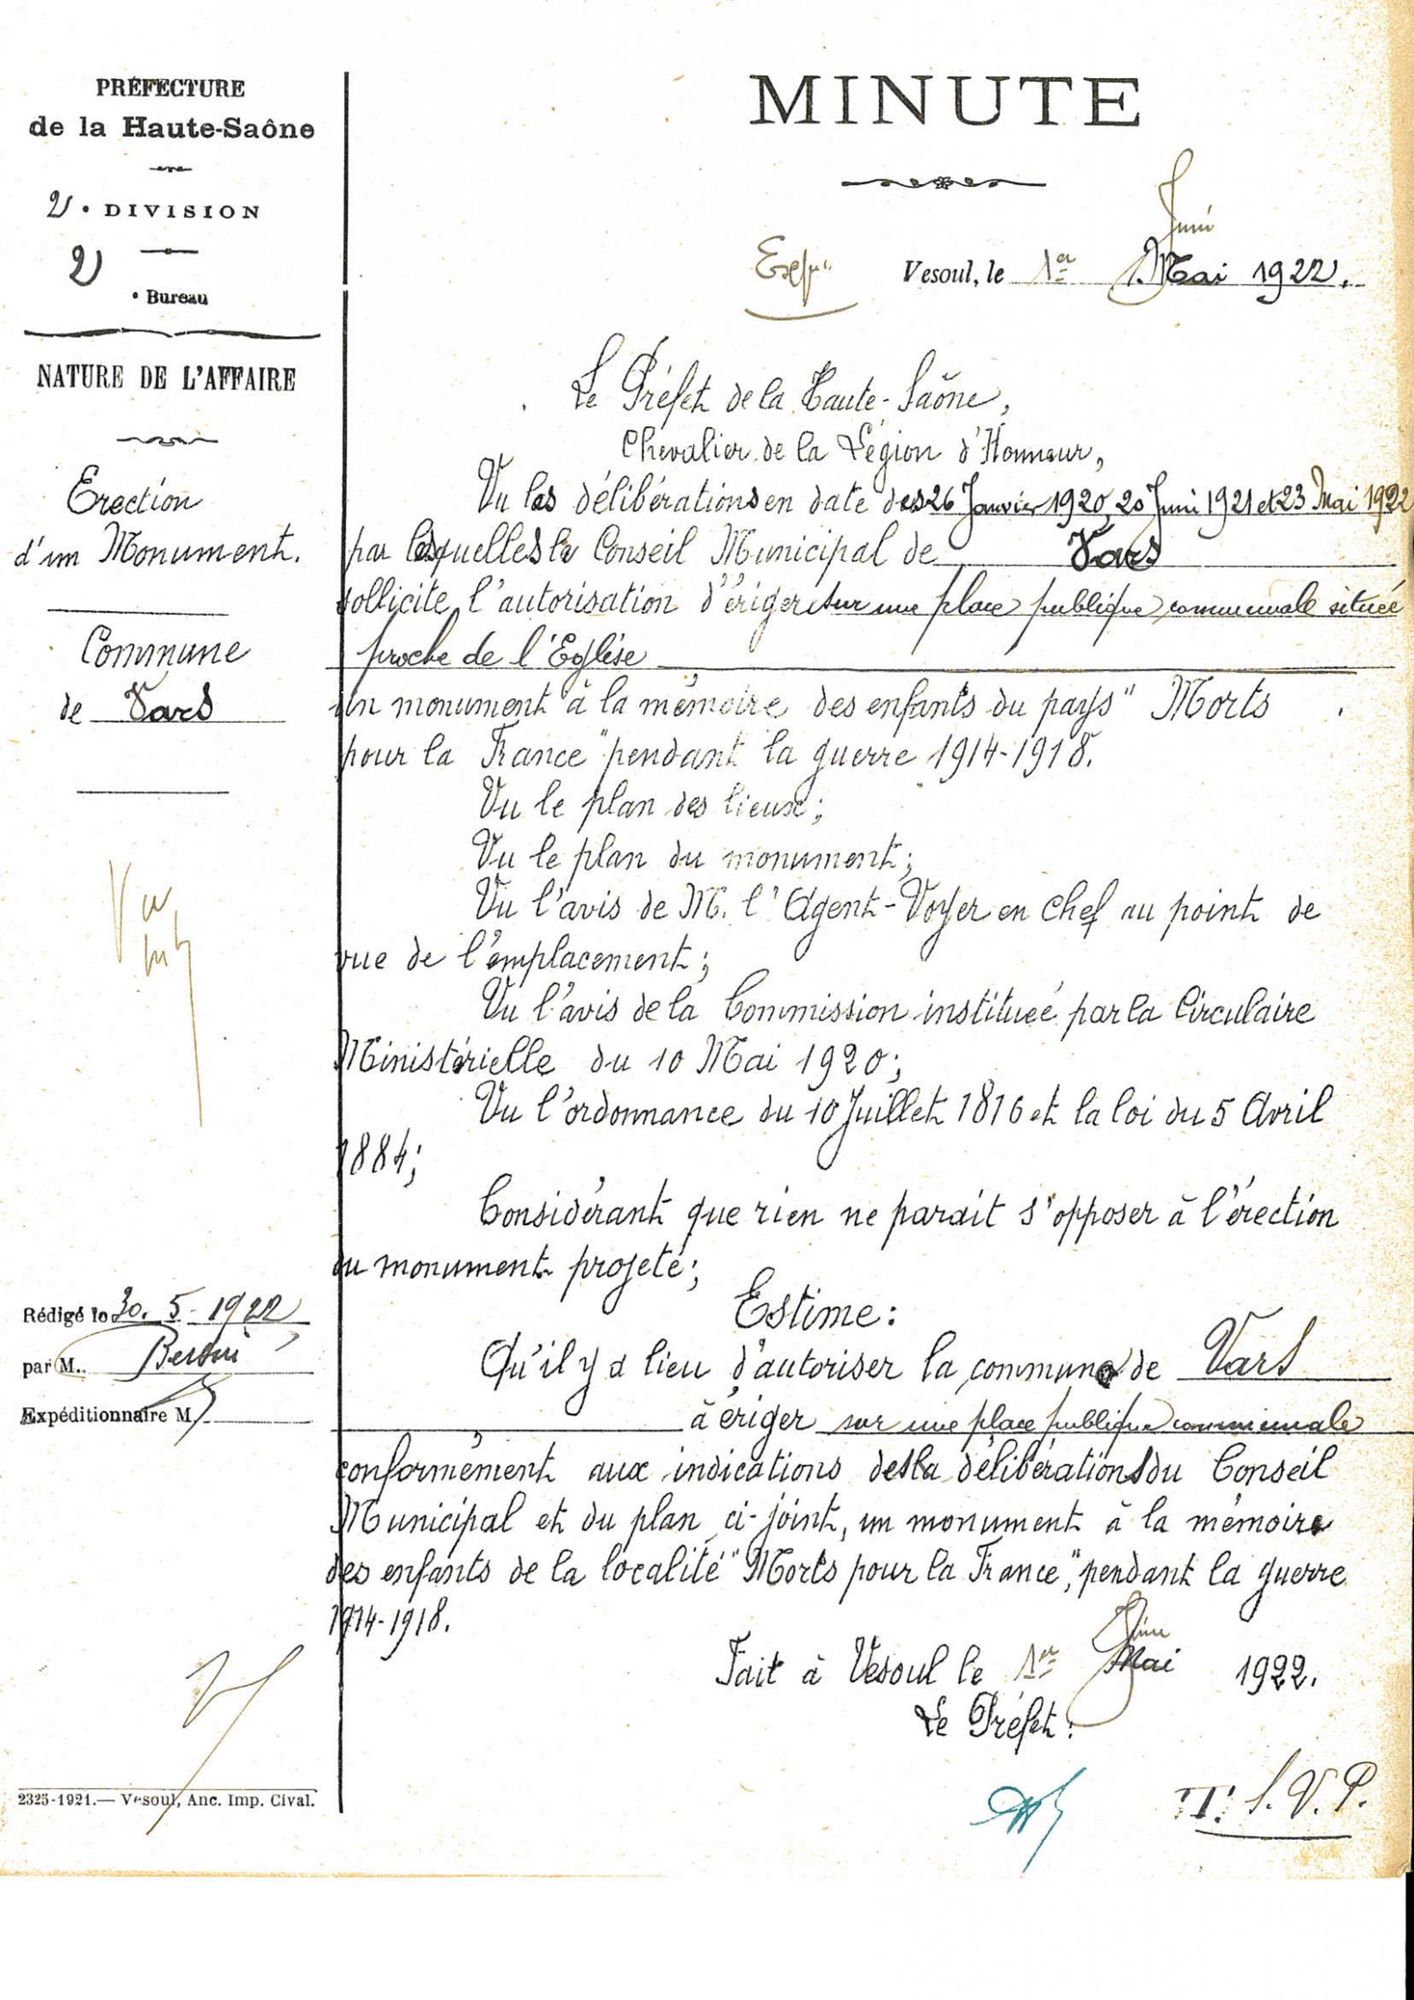 PRÉFECTURE
de la Haute-Saône
2e DIVISION
2
e Bureau
NATURE DE L'AFFAIRE
Erection
d'un Monument.
Commune
de Vars
Vu
Rédigé le 30. 5 - 1922
par M.
Expéditionnaire M
2325-1921.— Vesoul, Anc. Imp. Cival.
MINUTE
Juin
Vesoul, le 1er Mai 1922.
Le Préfet de la Haute-Saône,
Chevalier de la Légion d'Honneur,
Vu les délibérations en date des 26 Janvier 1920, 20 Juin 1921 et 23 Mai 1922
par lesquelles le Conseil Municipal de Vars
sollicite l'autorisation d'ériger sur une place publique communale située
proche de l'Eglise
un monument à la mémoire des enfants du pays "Morts
pour la France" pendant la guerre 1914-1918.
Vu le plan des lieux;
Vu le plan du monument;
Vu l'avis de M. l'Agent-Voyer en chef au point de
vue de l'emplacement;
Vu l'avis de la Commission instituée par la Circulaire
Ministérielle du 10 Mai 1920;
Vu l'ordonnance du 10 Juillet 1816 et la loi du 5 Avril
1884;
Considérant que rien ne parait s'opposer à l'érection
du monument projeté;
Estime:
Qu'il y a lieu d'autoriser la commune de Vars
à ériger sur une place publique communale
conformément aux indications des la délibérations du Conseil
Municipal et du plan ci-joint, un monument à la mémoire
des enfants de la localité "Morts pour la France", pendant la guerre
1914-1918.
Juin
Fait à Vesoul le 1er Mai 1922.
Le Préfet:
T. S. V. P.